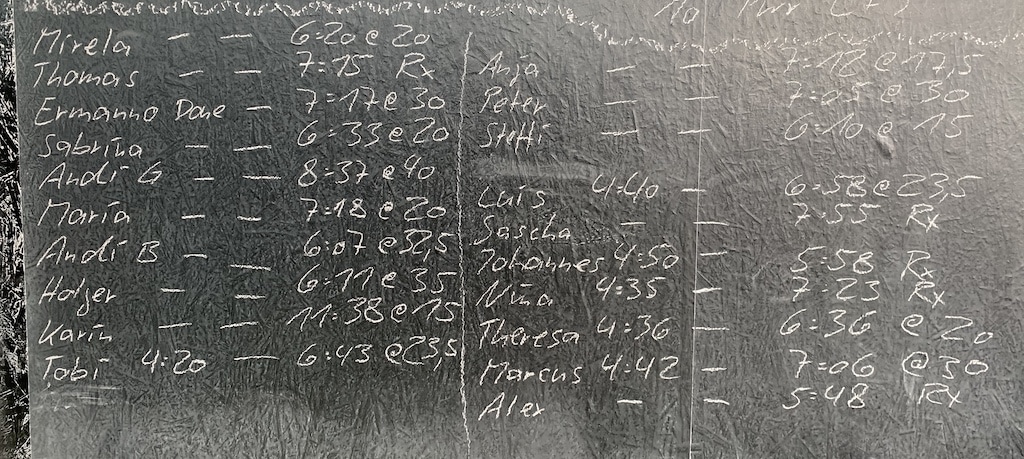 10
Mirela — — 6:20 @ 20
Thomas — — 7:15 Rx
Ermanno Done — 7:17 @ 30
Sabrina — — 6:33 @ 20
Andi G — — 8:37 @ 40
Maria — — 7:18 @ 20
Andi B — — 6:07 @ 32,5
Holger — — 6:11 @ 35
Karin — — 11:38 @ 15
Tobi 4:20 — 6:43 @ 23,5
Anja — — 7:12 @ 17,5
Peter — — 7:05 @ 30
Steffi — — 6:10 @ 15
Luis 4:40 — 6:58 @ 23,5
Sascha — — 7:55 Rx
Johannes 4:50 — 5:58 Rx
Nina 4:35 — 7:23 Rx
Theresa 4:36 — 6:36 @ 20
Marcus 4:42 — 7:06 @ 30
Alex — — 5:48 Rx